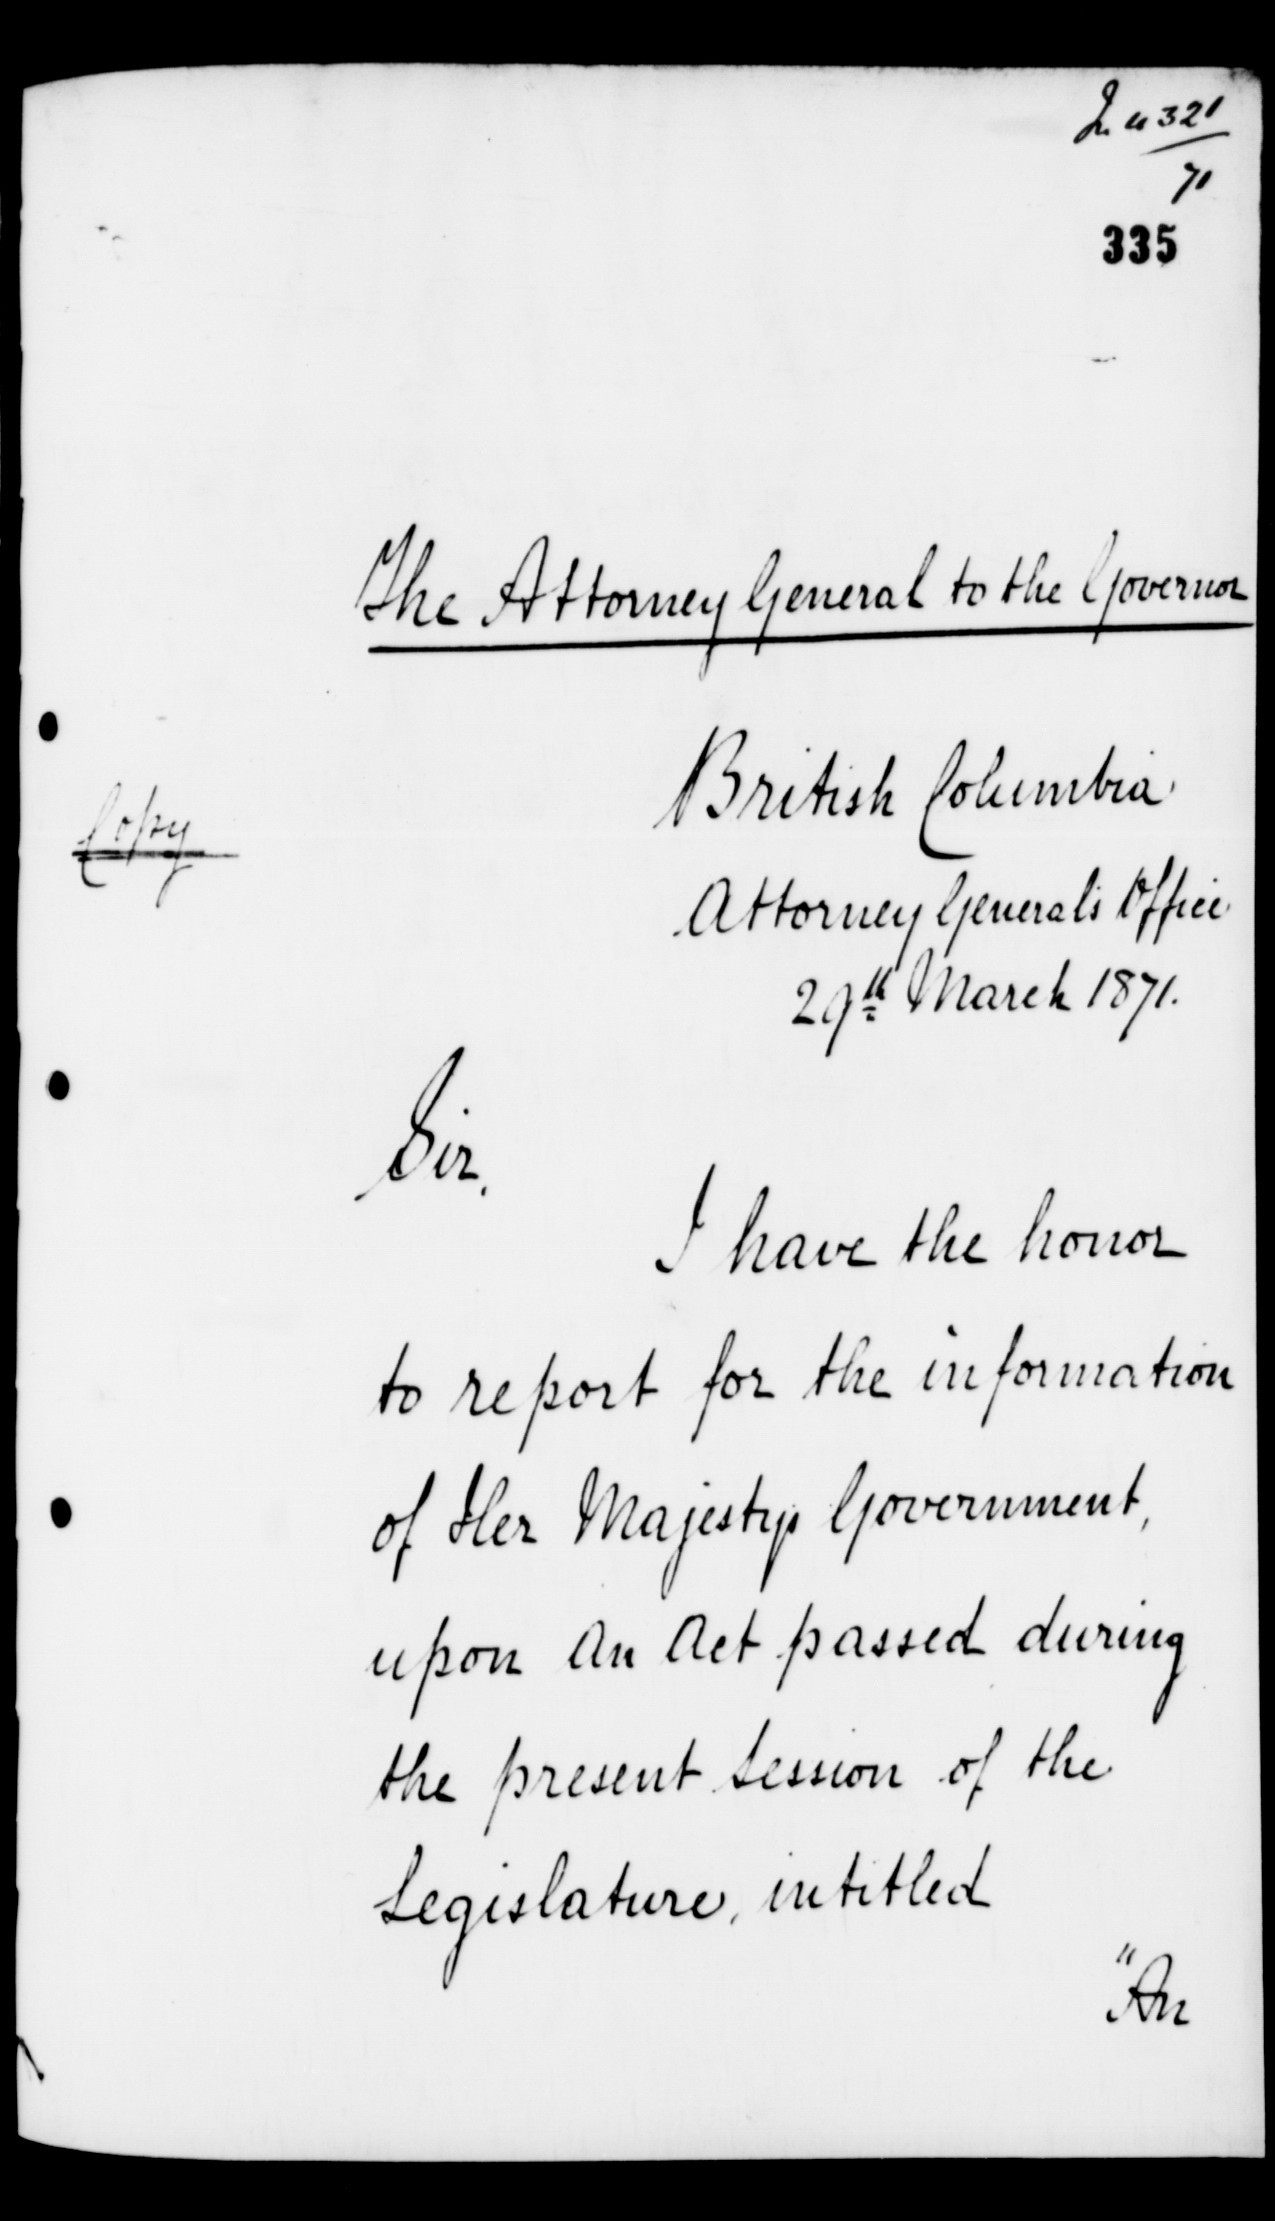 In 4321
71
335
The Attorney General to the Governor
British Columbia
Copy
Attorney General's Office
29th March 1871.
Sir,
I have the honor
to report for the information
of Her Majestys Government,
upon An Act passed during
the present Session of the
Legislature, intitled
"An